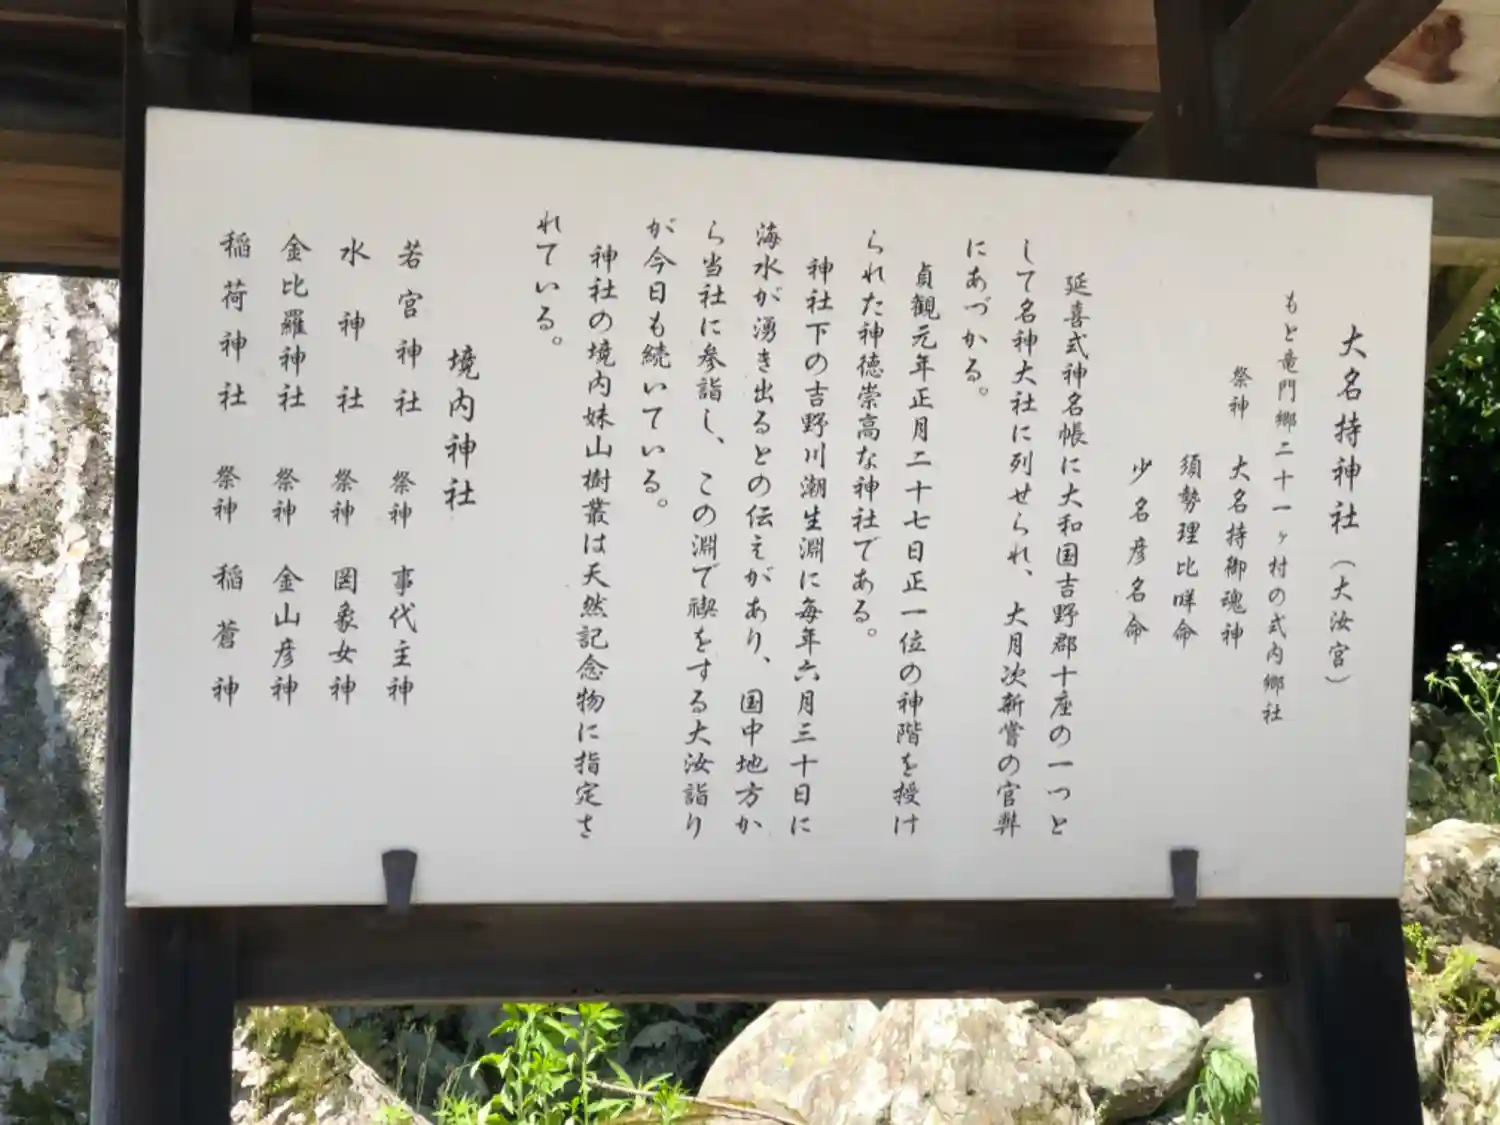 大名持神社（大汝宮）
もと竜門郷二十一ヶ村の式内郷社
祭神 大名持御魂神
須勢理比咩命
少名彦名命
延喜式神名帳に大和国吉野郡十座の一つと
して名神大社に列せられ、大月次新嘗の官弊
にあづかる。
貞観元年正月二十七日正一位の神階を授け
られた神徳崇高な神社である。
神社下の吉野川潮生淵に毎年六月三十日に
海水が湧き出るとの伝えがあり、国中地方か
ら当社に参詣し、この淵で禊をする大汝詣り
が今日も続いている。
神社の境内妹山樹叢は天然記念物に指定さ
れている。
境内神社
若宮神社 祭神 事代主神
水神社 祭神 罔象女神
金比羅神社 祭神 金山彦神
稲荷神社 祭神 稲蒼神